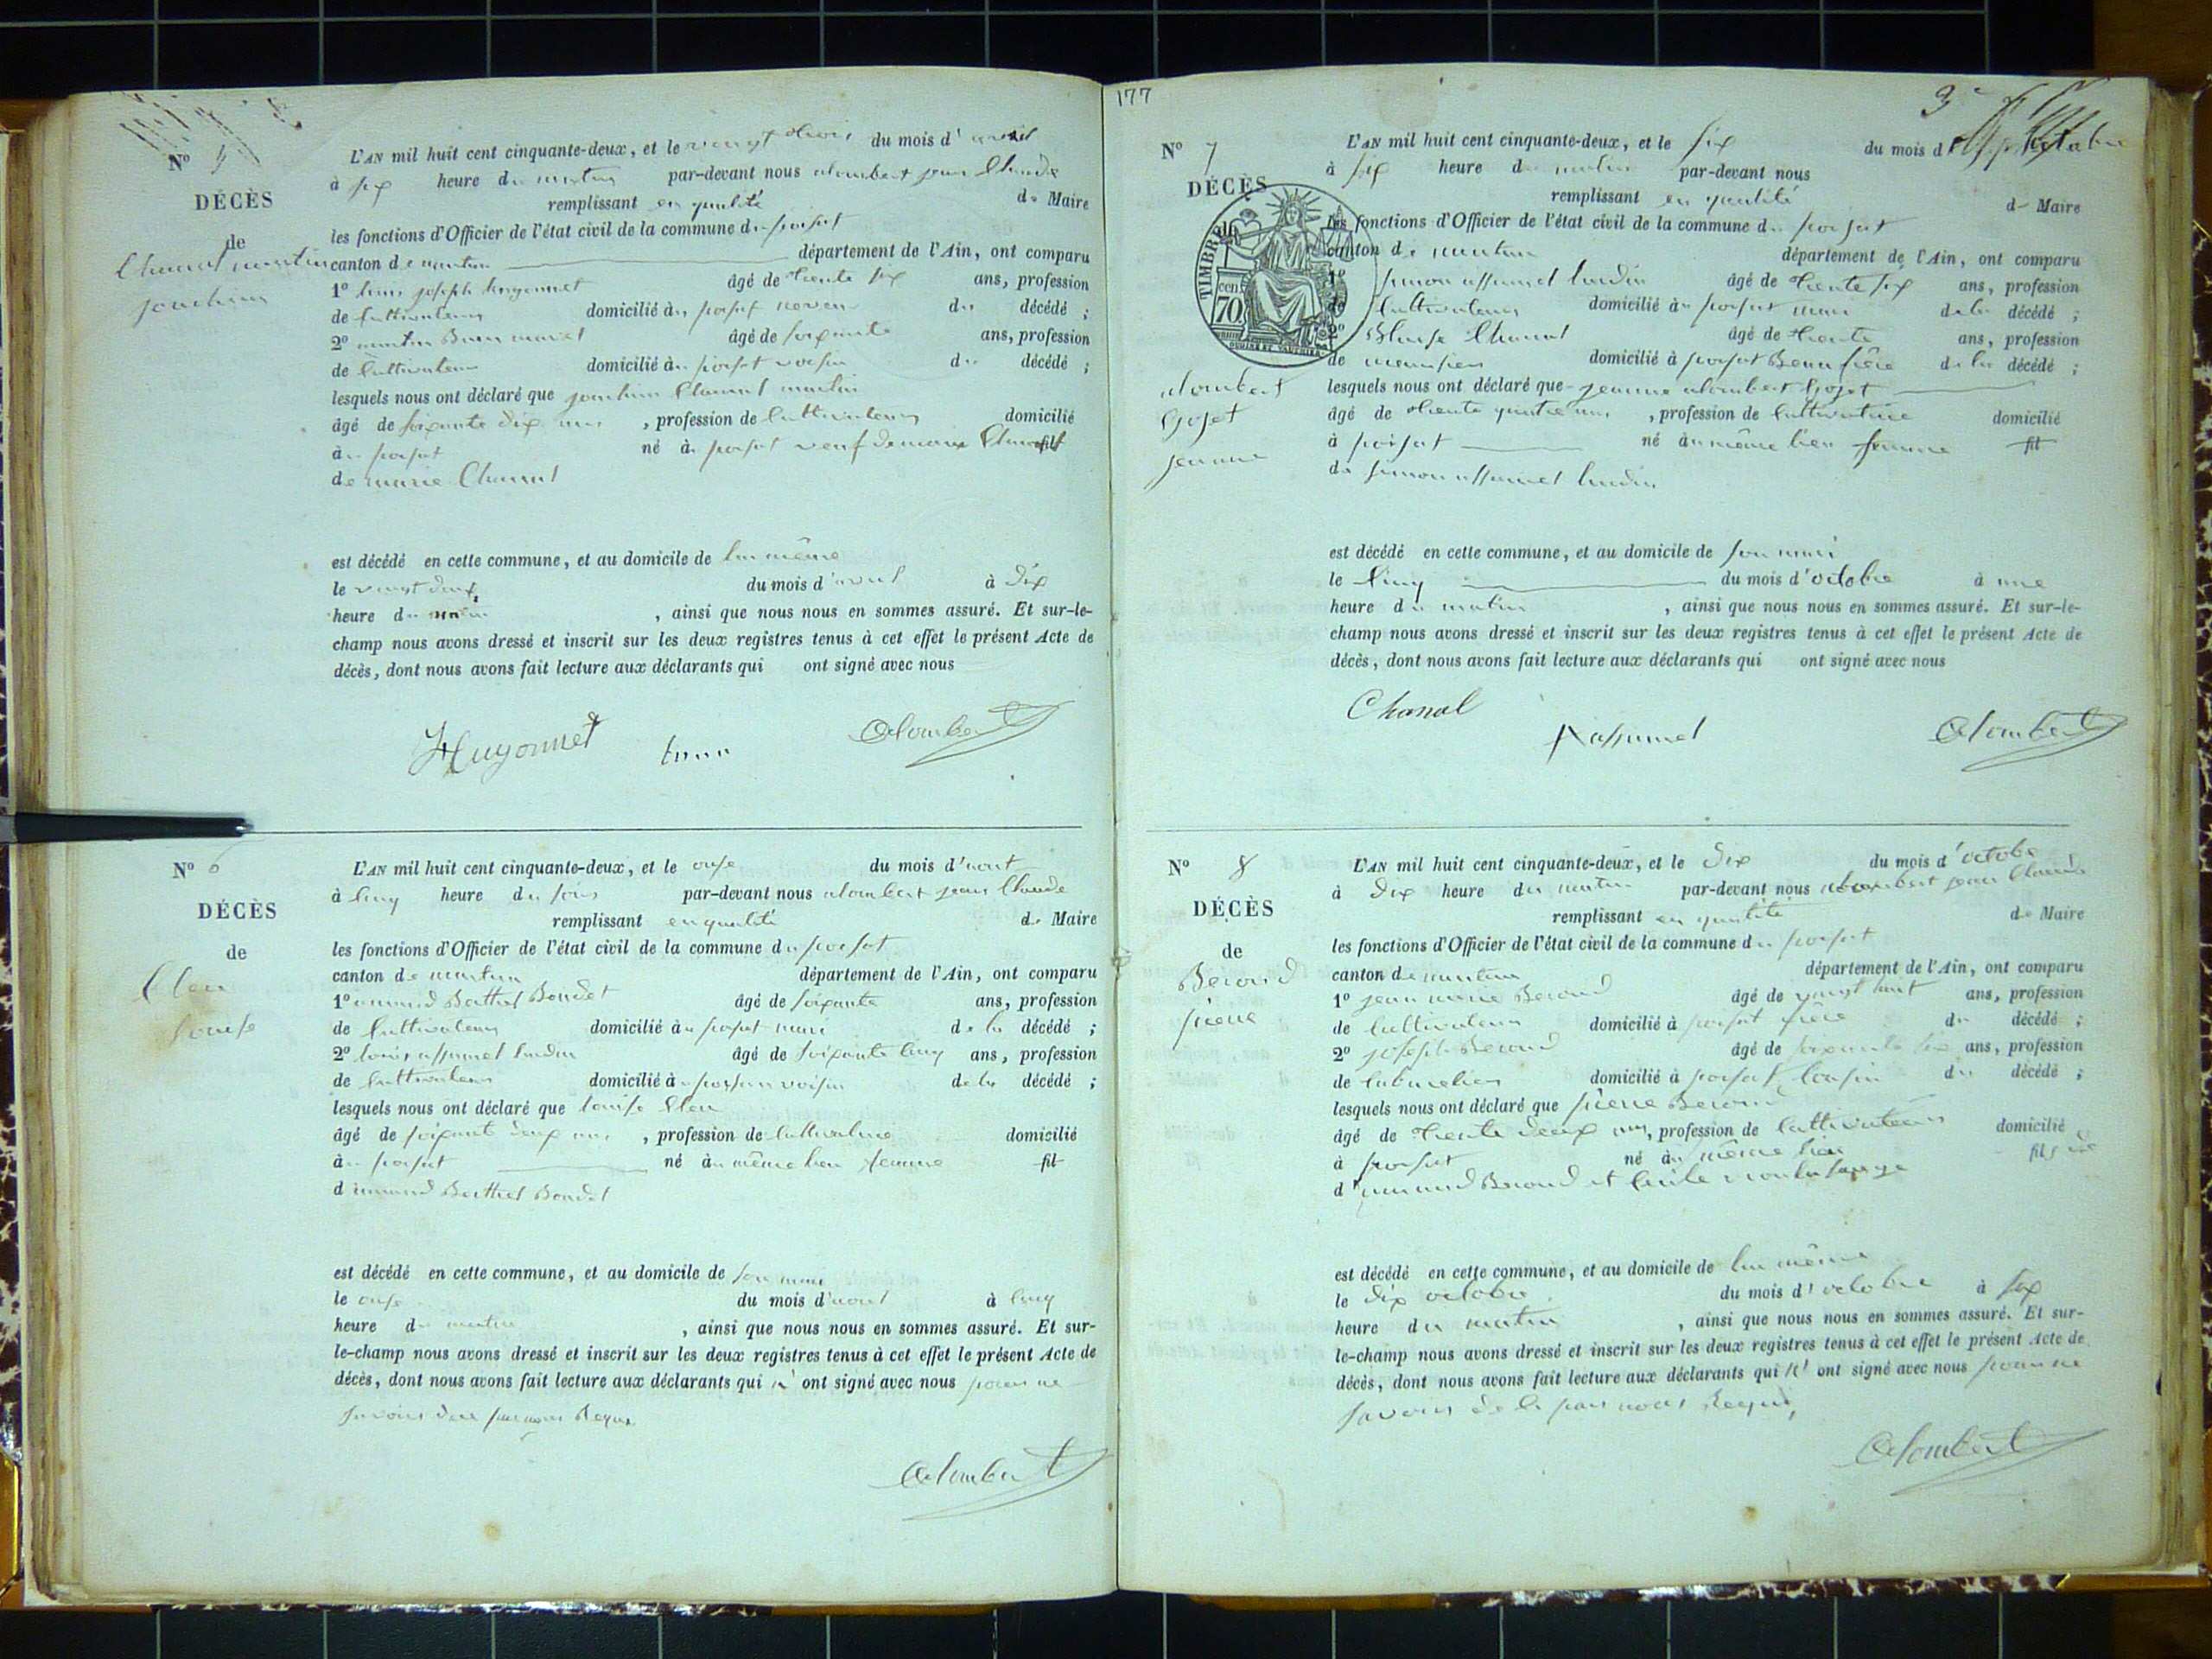 N° 5
DÉCÈS
de
Chanal martin
joachim
L'AN mil huit cent cinquante-deux, et le vingt trois du mois d'avril
à six heure du matin par-devant nous alombert jean Claude
remplissant en qualité de Maire
les fonctions d'Officier de l'état civil de la commune du poisat
canton de nantua département de l'Ain, ont comparu
1° joseph hugonnet âgé de trente six ans, profession
de Cultivateur domicilié au poisat neveu du décédé ;
2° âgé de soixante ans, profession
de Cultivateur domicilié au poisat voisin du décédé ;
lesquels nous ont déclaré que joachim Chanal martin
âgé de soixante dix ans, profession de Cultivateur domicilié
au poisat né au poisat veuf de marie Chanal fils
de marie Chanal
est décédé en cette commune, et au domicile de lui même
le vingt deux du mois d'avril à dix
heure du matin, ainsi que nous nous en sommes assuré. Et sur-le-
champ nous avons dressé et inscrit sur les deux registres tenus à cet effet le présent Acte de
décès, dont nous avons fait lecture aux déclarants qui ont signé avec nous
Hugonnet Alombert
N° 6
DÉCÈS
de
Cleu
louise
L'AN mil huit cent cinquante-deux, et le onze du mois d'aout
à cinq heure du soir par-devant nous alombert jean Claude
remplissant en qualité de Maire
les fonctions d'Officier de l'état civil de la commune du poisat
canton de nantua département de l'Ain, ont comparu
1° amand Berthet Bondet âgé de soixante ans, profession
de Cultivateur domicilié au poisat mari de la décédé ;
2° louis assumel lurdin âgé de soixante cinq ans, profession
de Cultivateur domicilié au voisin de la décédé ;
lesquels nous ont déclaré que louise Cleu
âgé de soixante deux ans, profession de Cultivatrice domicilié
au poisat né au même lieu femme fil
d'amand Berthet Bondet
est décédé en cette commune, et au domicile de son mari
le onze du mois d'aout à cinq
heure du matin, ainsi que nous nous en sommes assuré. Et sur-
le-champ nous avons dressé et inscrit sur les deux registres tenus à cet effet le présent Acte de
décès, dont nous avons fait lecture aux déclarants qui n'ont signé avec nous pour ne
savoir Requis
Alombert
177
3
N° 7
DÉCÈS
de
TIMBRE
70
alombert
Gojet
jeanne
L'AN mil huit cent cinquante-deux, et le six du mois d'octobre
à six heure du matin par-devant nous
remplissant en qualité de Maire
les fonctions d'Officier de l'état civil de la commune du poisat
canton de nantua département de l'Ain, ont comparu
1° simon assumel lurdin âgé de trente six ans, profession
de Cultivateur domicilié au poisat mari de la décédé ;
2° Blaise Chanal âgé de trente ans, profession
de menuisier domicilié à poisat Beau frère de la décédé ;
lesquels nous ont déclaré que jeanne alombert Gojet
âgé de trente quatre ans, profession de Cultivatrice domicilié
à poisat né au même lieu femme fil
de simon assumel lurdin
est décédé en cette commune, et au domicile de son mari
le Cinq du mois d'octobre à une
heure du matin, ainsi que nous nous en sommes assuré. Et sur-le-
champ nous avons dressé et inscrit sur les deux registres tenus à cet effet le présent Acte de
décès, dont nous avons fait lecture aux déclarants qui ont signé avec nous
Chanal assumel Alombert
N° 8
DÉCÈS
de
Beroud
pierre
L'AN mil huit cent cinquante-deux, et le dix du mois d'octobre
à dix heure du matin par-devant nous alombert jean Claude
remplissant en qualité de Maire
les fonctions d'Officier de l'état civil de la commune du poisat
canton de nantua département de l'Ain, ont comparu
1° jean marie Beroud âgé de vingt huit ans, profession
de Cultivateur domicilié à poisat frère du décédé ;
2° joseph Beroud âgé de soixante six ans, profession
de domicilié à poisat Cousin du décédé ;
lesquels nous ont déclaré que pierre Beroud
âgé de trente deux ans, profession de Cultivateur domicilié
à poisat né au même lieu fils
d'amand Beroud et
est décédé en cette commune, et au domicile de lui même
le dix octobre du mois d'octobre à six
heure du matin, ainsi que nous nous en sommes assuré. Et sur-
le-champ nous avons dressé et inscrit sur les deux registres tenus à cet effet le présent Acte de
décès, dont nous avons fait lecture aux déclarants qui n'ont signé avec nous pour ne
savoir de la par nous Requis
Alombert